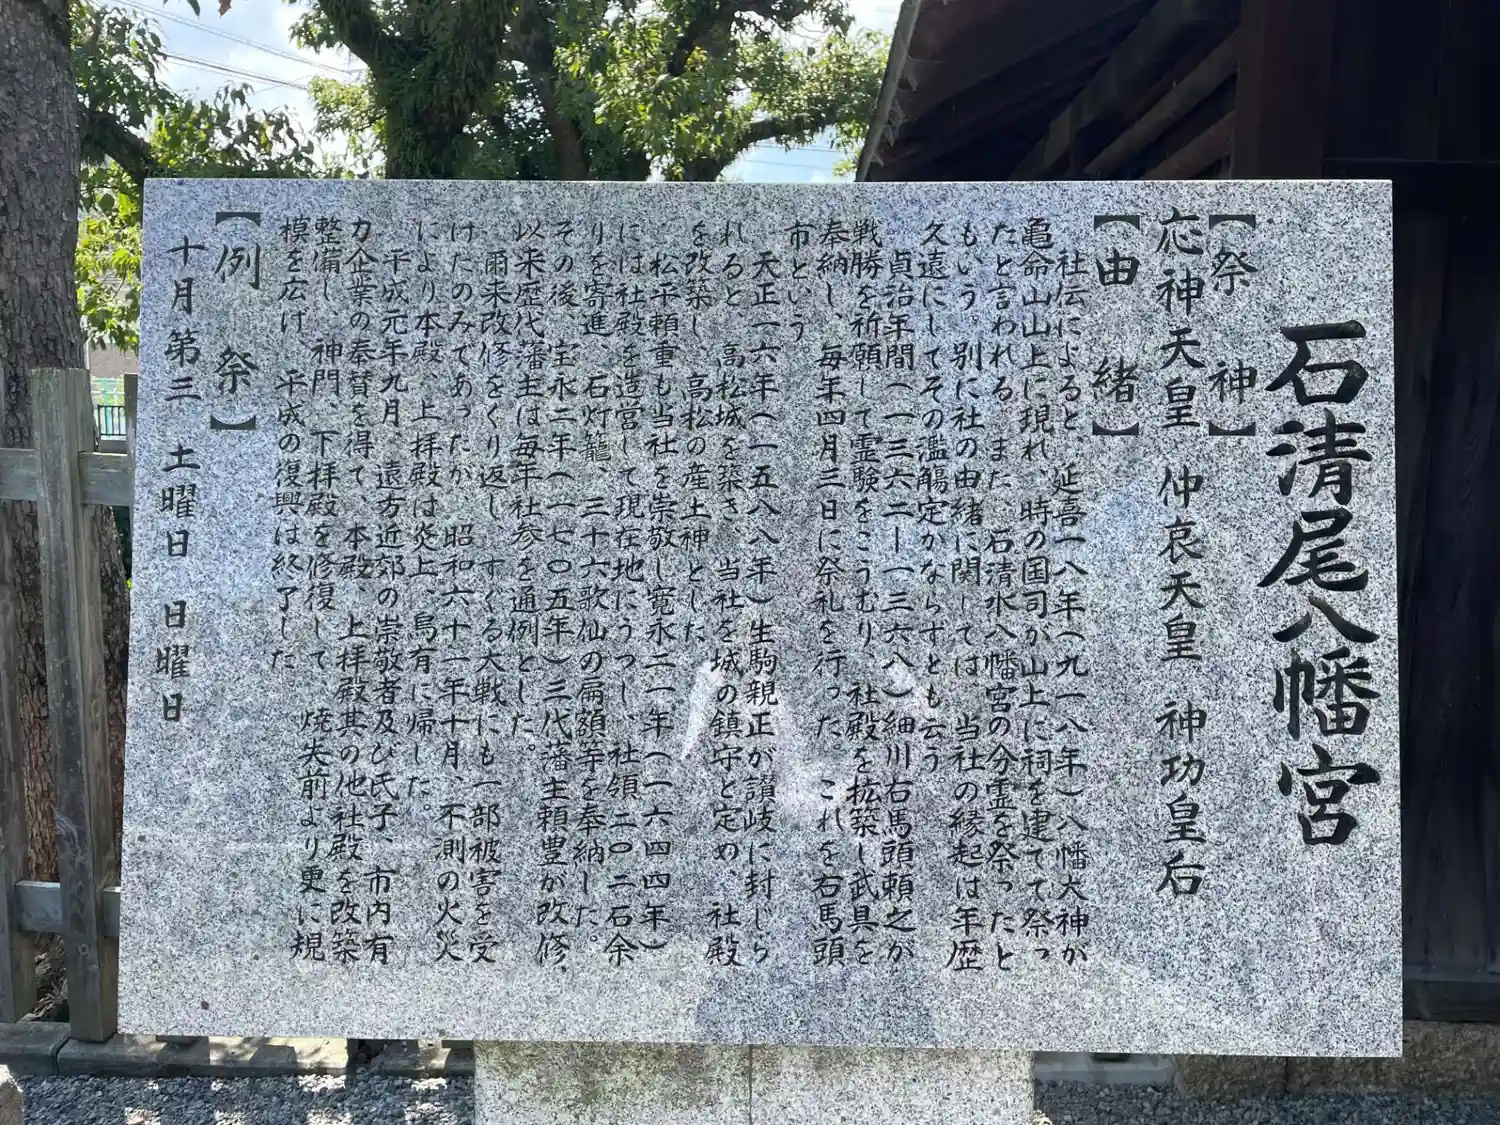 石清尾八幡宮
【祭神】
応神天皇 仲哀天皇 神功皇后
【由緒】
社伝によると、延喜一八年(九一八年)八幡大神が
亀命山山上に現れ、時の国司が山上に祠を建てて祭っ
たと言われる。また、石清水八幡宮の分霊を祭ったと
もいう。別に社の由緒に関しては、当社の縁起は年歴
久遠にしてその濫觴定かならずとも云う。
貞治年間(一三六二ー一三六八)細川右馬頭頼之が
戦勝を祈願して霊験をこうむり、社殿を拡築し武具を
奉納し、毎年四月三日に祭礼を行った。これを右馬頭
市という。
天正一六年(一五八八年)生駒親正が讃岐に封じら
れると、高松城を築き、当社を城の鎮守と定め、社殿
を改築し、高松の産土神とした。
松平頼重も当社を崇敬し寛永二一年(一六四四年)
には社殿を造営して現在地にうつし、社領二〇二石余
りを寄進、石灯籠、三十六歌仙の扁額等を奉納した。
その後、宝永二年(一七〇五年)三代藩主頼豊が改修、
以来歴代藩主は毎年社参を通例とした。
爾来改修をくり返し、すぐる大戦にも一部被害を受
けたのみであったが、昭和六十一年十月、不測の火災
により本殿、上拝殿は炎上、烏有に帰した。
平成元年九月、遠方近郊の崇敬者及び氏子、市内有
力企業の奉賛を得て、本殿、上拝殿其の他社殿を改築
整備し、神門、下拝殿を修復して、焼失前より更に規
模を広げ、平成の復興は終了した。
【例祭】
十月第三 土曜日 日曜日